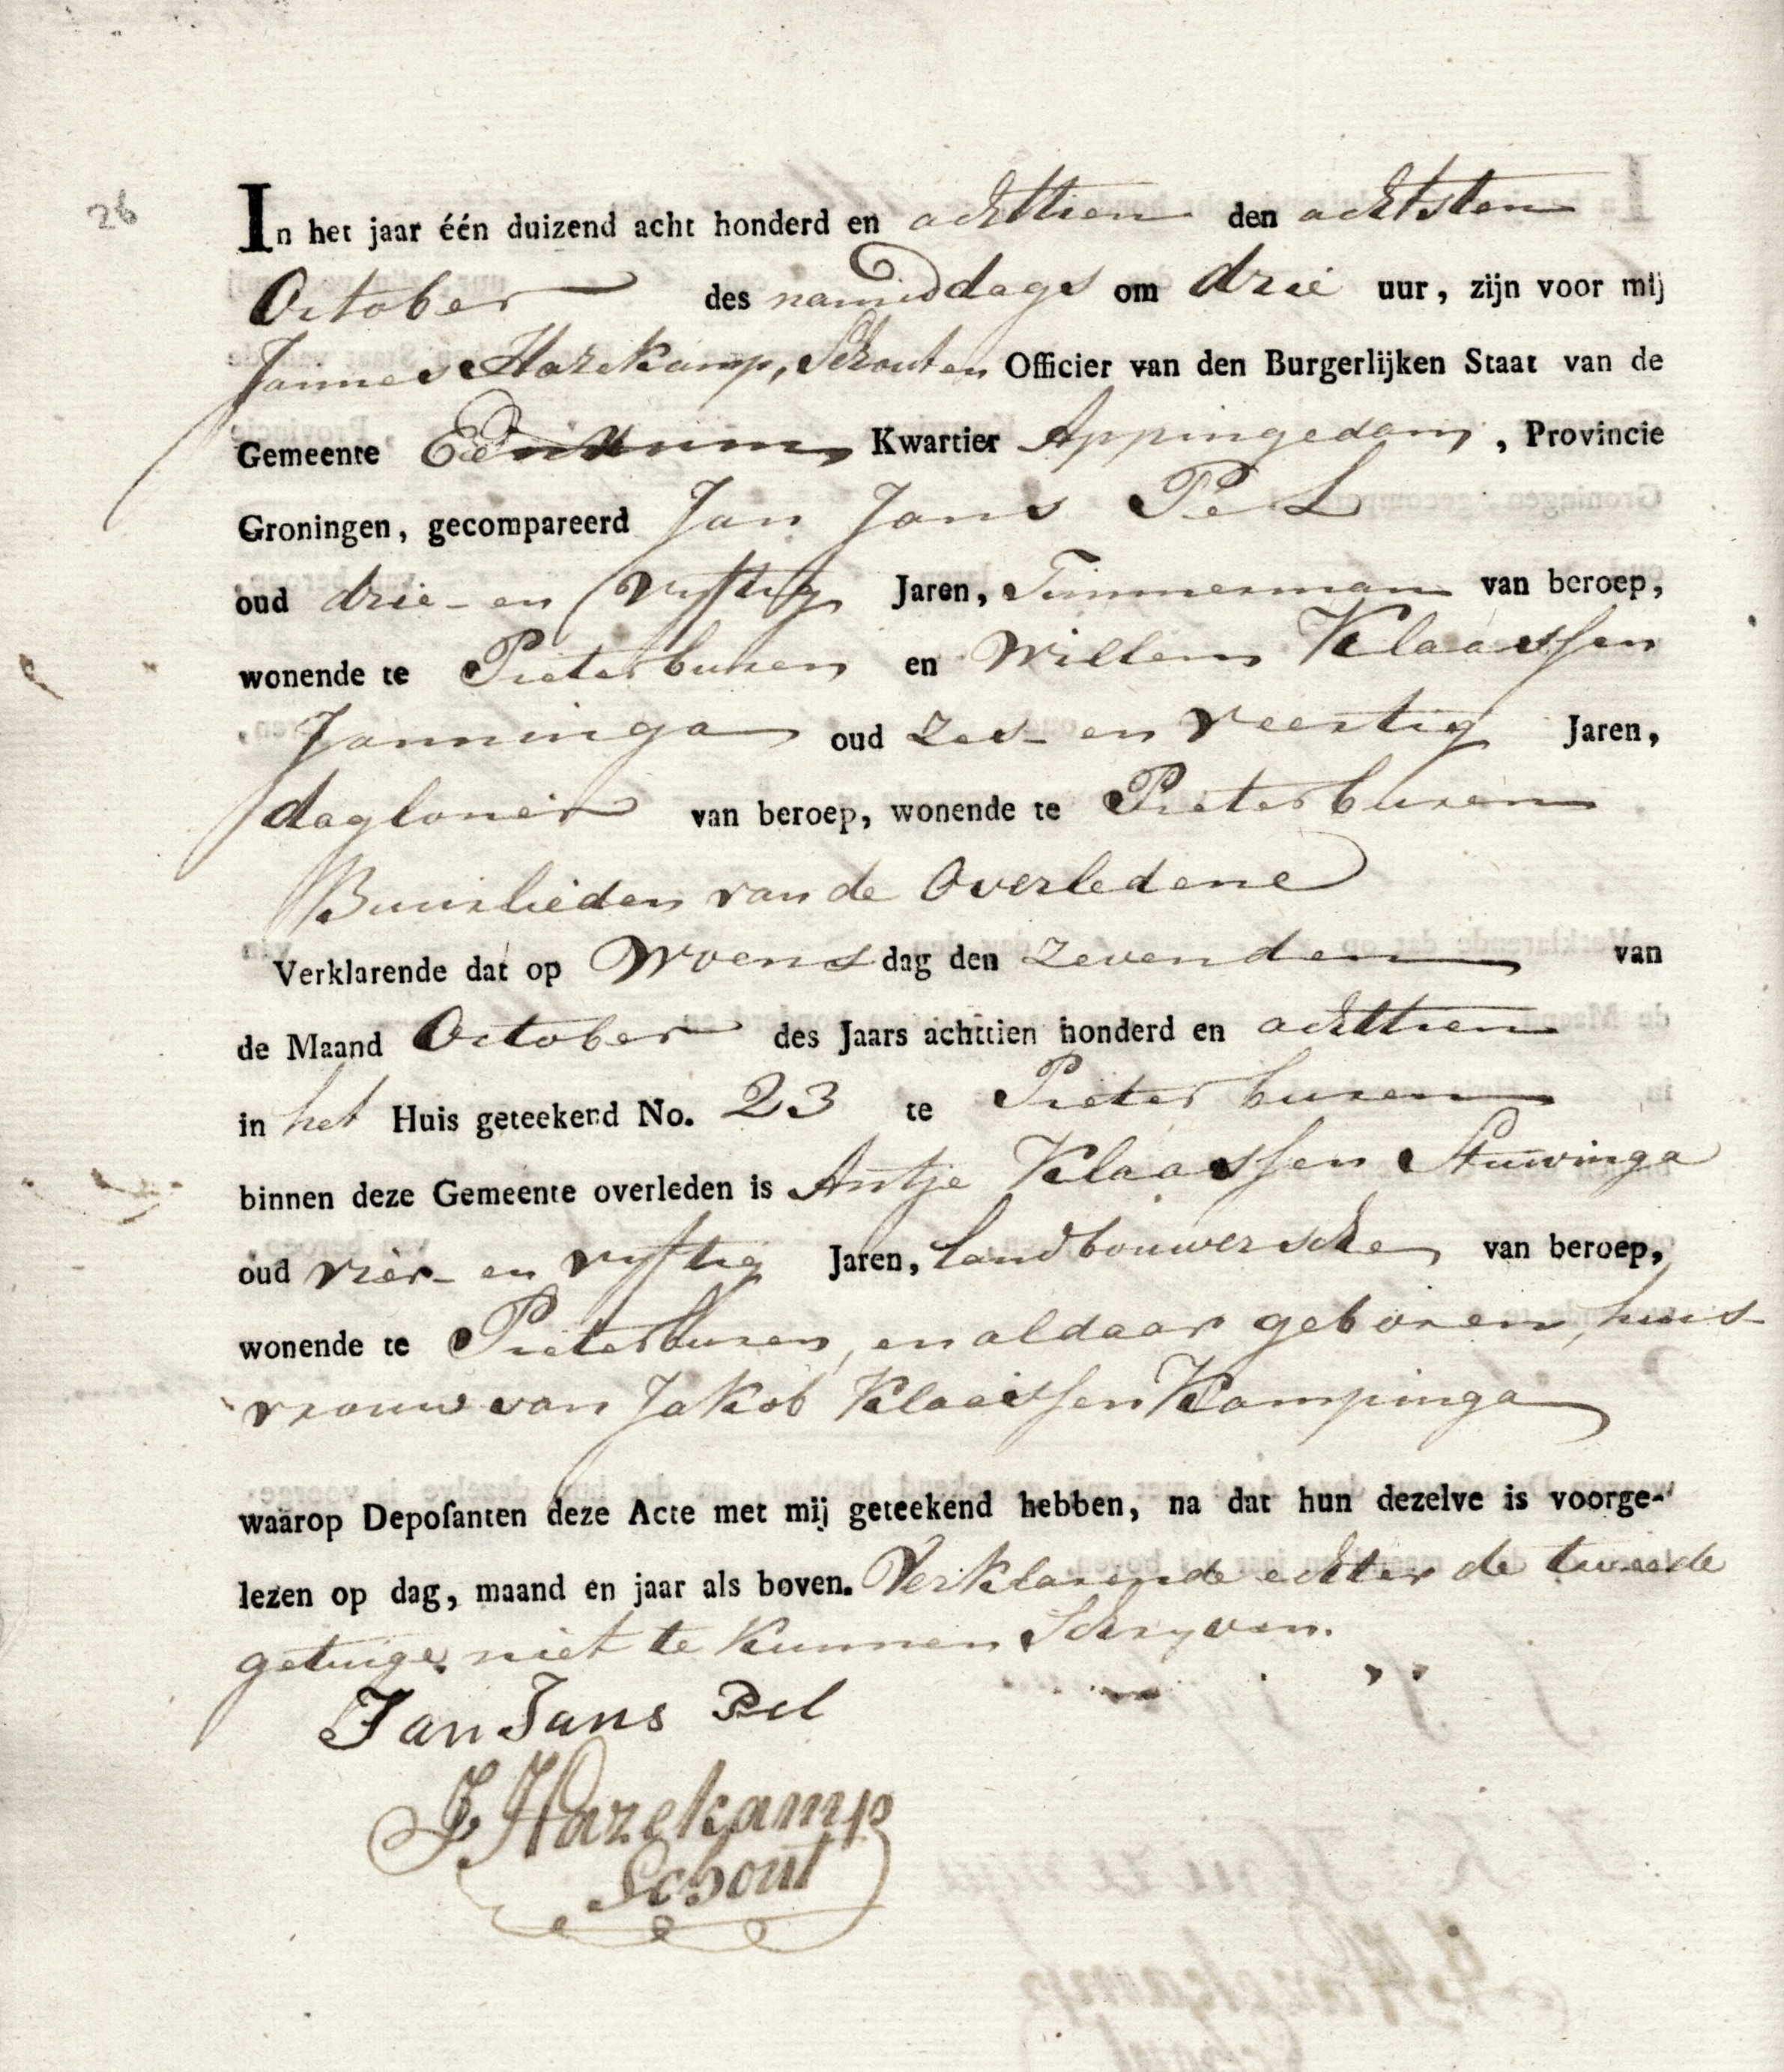 26
In het jaar één duizend acht honderd en achttien den achtsten
October des namiddags om drie uur, zijn voor mij
Jannes Hazekamp, Schout en Officier van den Burgerlijken Staat van de
Gemeente Eenrum Kwartier Appingedam, Provincie
Groningen, gecompareerd Jan Jans Pel
oud drie- en vyftig Jaren, Timmerman van beroep,
wonende te Pieterburen en Willem Klaassen
Janninga oud zes- en veertig Jaren,
dagloner van beroep, wonende te Pieterburen
Buurlieden van de Overledene
Verklarende dat op Woensdag den zevenden van
de Maand October des Jaars achttien honderd en achttien
in het Huis geteekend No. 23 te Pieterburen
binnen deze Gemeente overleden is Antje Klaassen Stuwinga
oud vier- en vyftig Jaren, landbouwersche van beroep,
wonende te Pieterburen, en aldaar geboren, huis-
vrouw van Jakob Klaassen Kampinga
waarop Deposanten deze Acte met mij geteekend hebben, na dat hun dezelve is voorge-
lezen op dag, maand en jaar als boven. Verklarende echter de tweede
getuige niet te kunnen Schryven.
Jan Jans Pel
J. Hazekamp
Schout